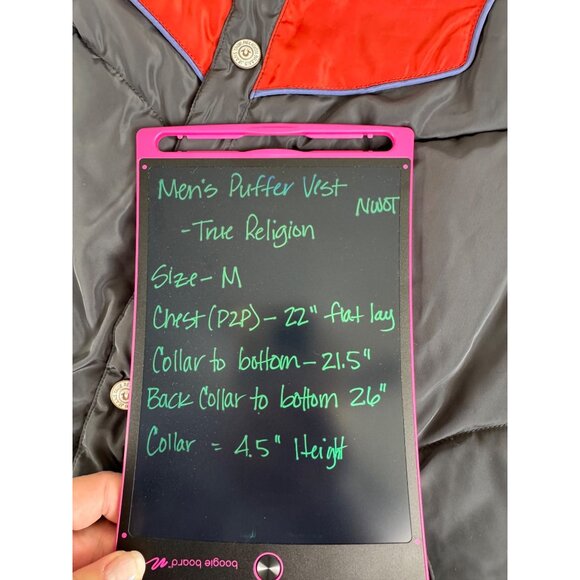 Men's Puffer Vest
NWOT
-True Religion
Size - M
Chest (P2P) - 22" flat lay
Collar to bottom - 21.5"
Back Collar to bottom 26"
Collar = 4.5" Height
boogie board